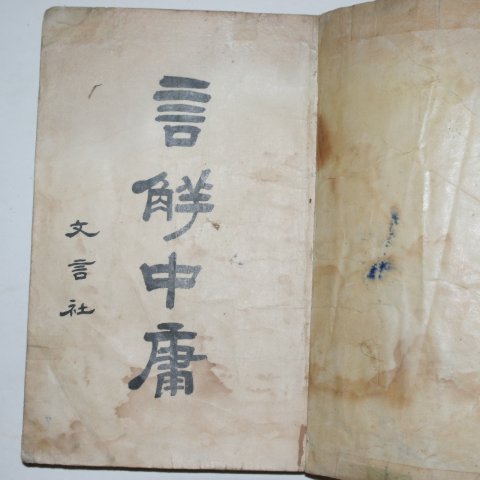 言解中庸
文言社